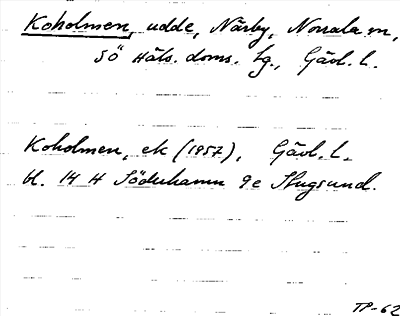 Koholmen, udde, Närby, Norrala sn,
SÖ Häls. doms. tg., Gävl. l.
Koholmen, ek (1957), Gävl. l.
bl. 14 H Söderhamn 9e Stugsund.
TP-62